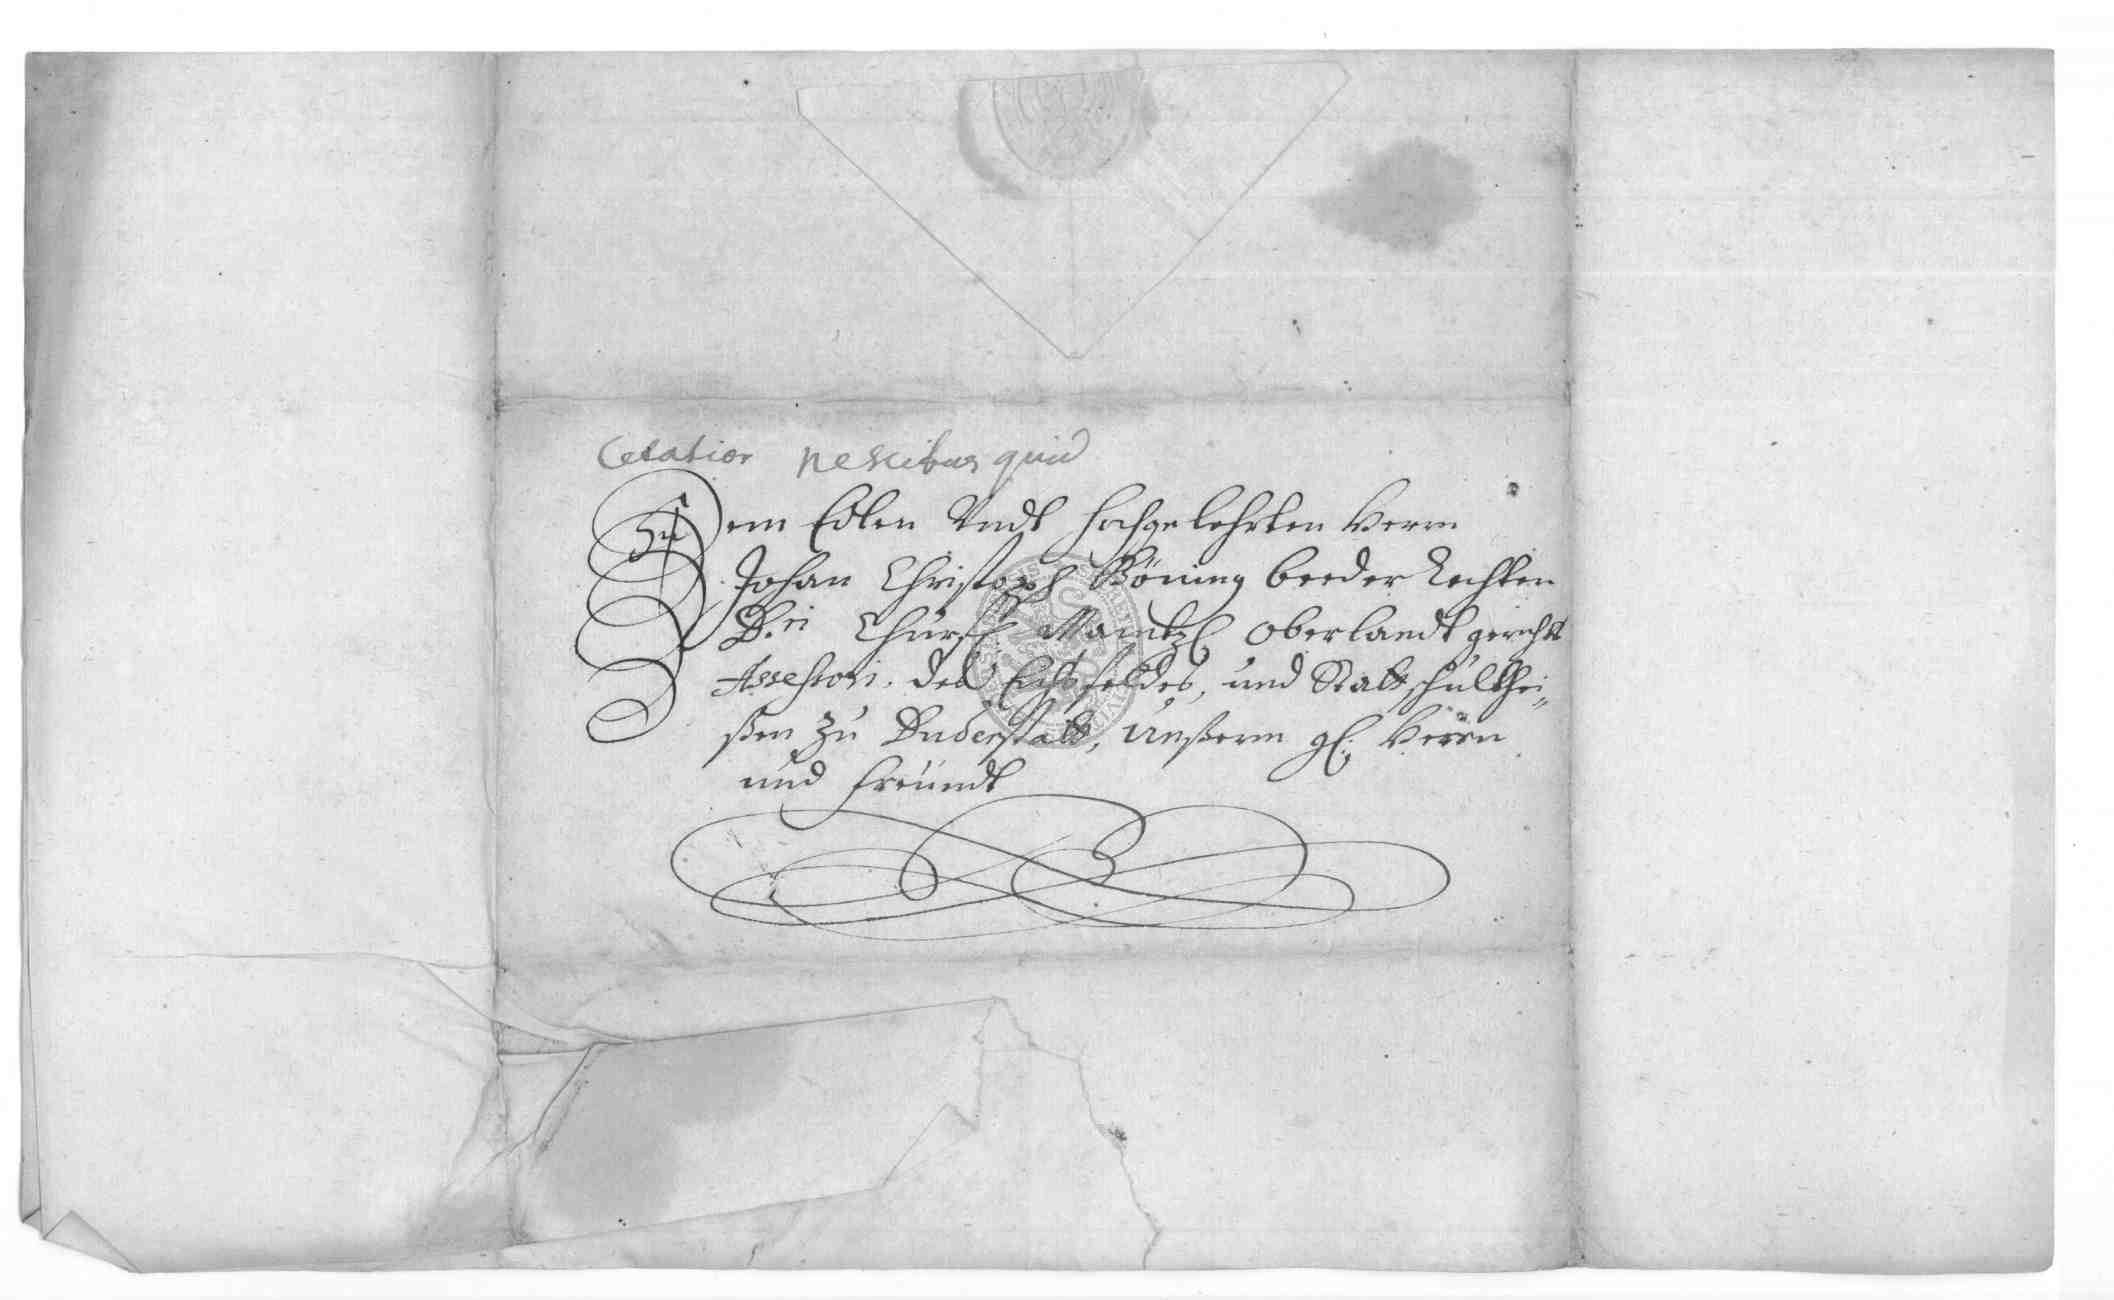 Citatior nescibus quid
Dem Edlen Vndt hochgelehrten Herrn
Johan Christoph Böning beeder Rechten
D.ri Churf. Maintzl Oberlandtgerichts
Assessori des Eichsfeldes, und Stattschulthei„
ßen zu Duderstatt, Unßerm gl. Herrn
und Freündt